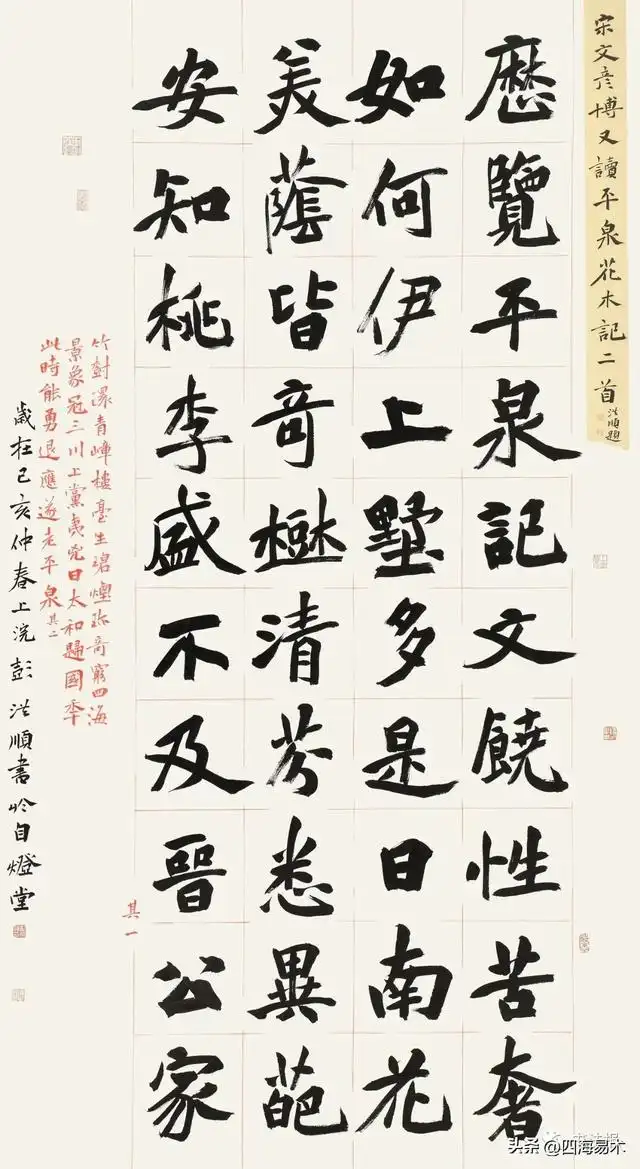 宋文彦博又讀平泉花木記二首
洪順題
歷覽平泉記文饒性苦奢
如何伊上墅多是日南花
美蔭皆奇樾清芳悉異葩
安知桃李盛不及晉公家
其一
竹樹青嶂樓臺生碧煙珍奇窮四海
景象冠三川上黨夷兇日太和歸國年
此時能勇退應遂老平泉其二
歲在己亥仲春上浣彭洪順書於自燈堂
头条@四海易木